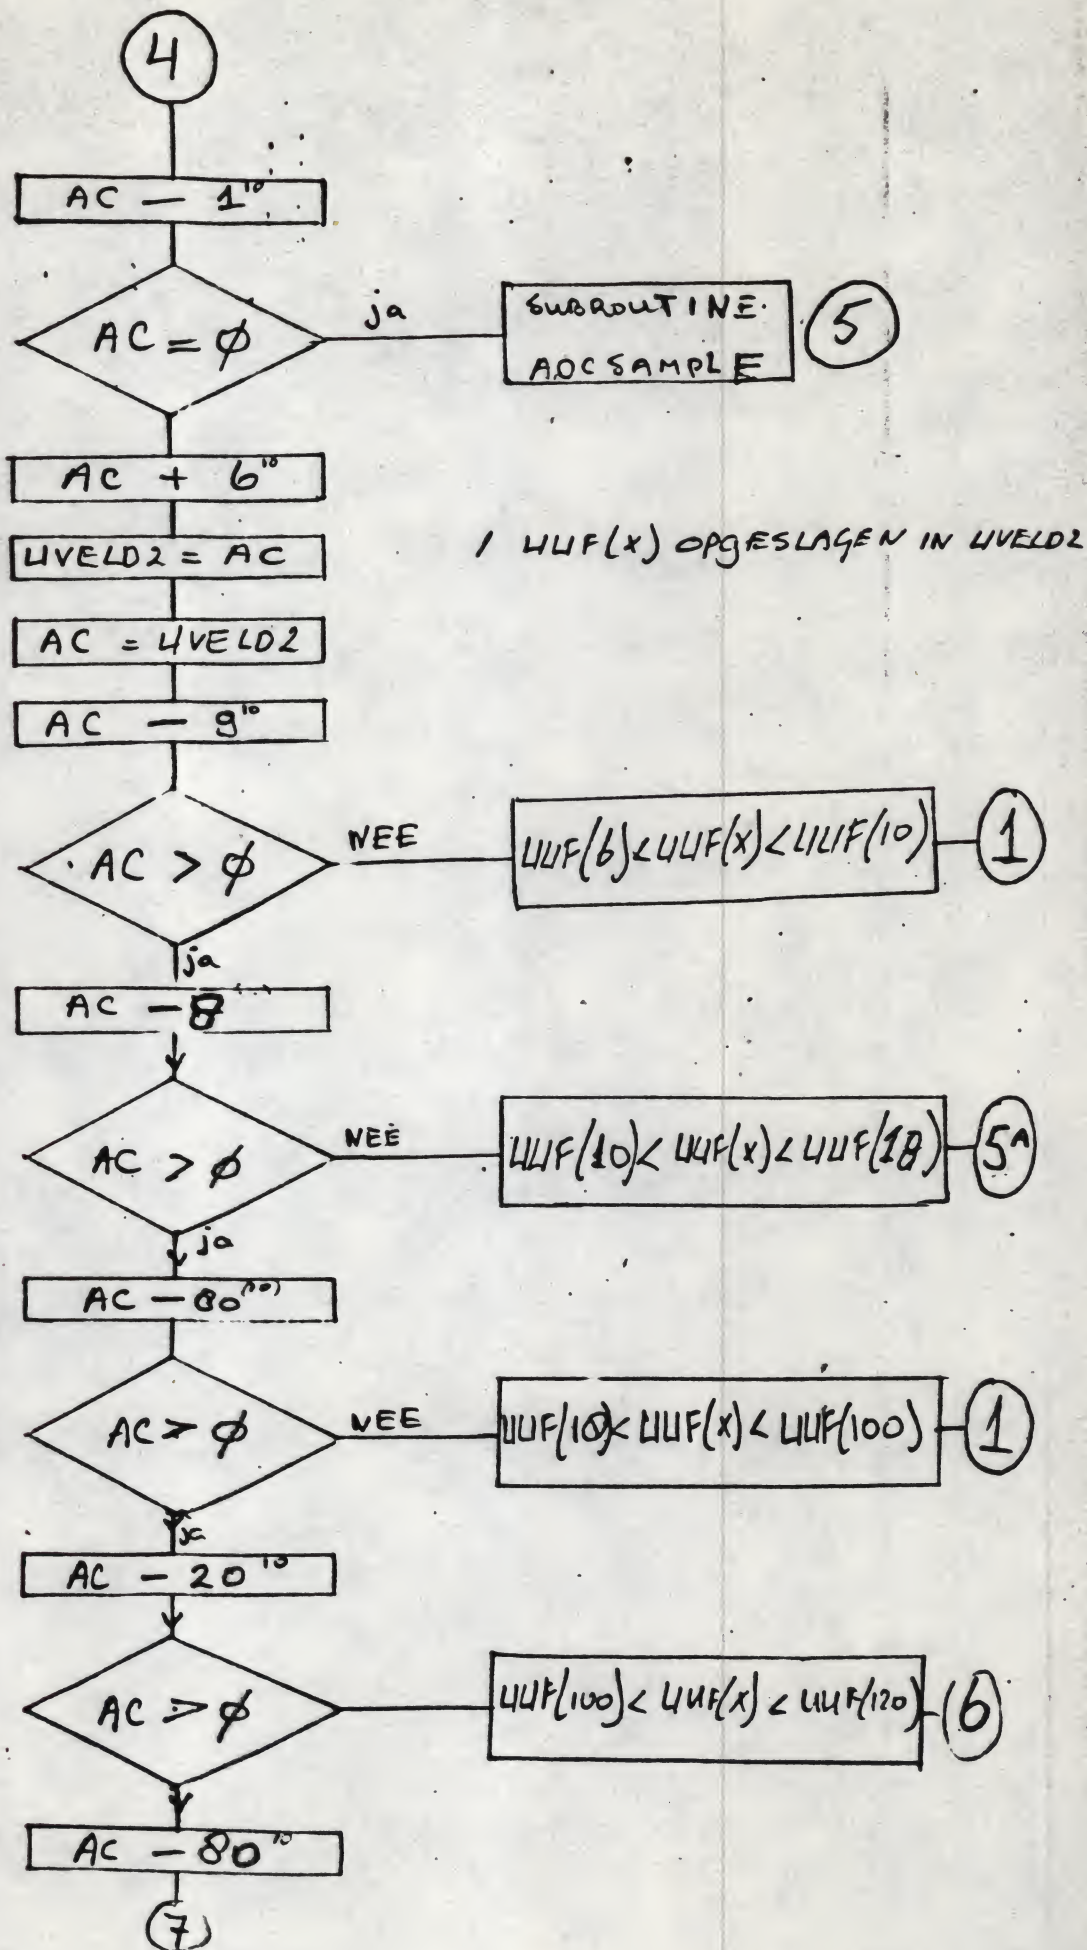 4
AC — 1¹⁰
AC = ϕ
ja
SUBROUTINE.
ADCSAMPLE
5
AC + 6¹⁰
UVELD2 = AC
/ UUF(x) OPGESLAGEN IN UVELD2
AC = UVELD2
AC — 9¹⁰
AC > ϕ
NEE
UUF(6)<UUF(x)<UUF(10)
1
ja
AC — 8
AC > ϕ
NEE
UUF(10)< UUF(x)< UUF(18)
5A
ja
AC — 80⁽¹⁰⁾
AC > ϕ
NEE
UUF(18)< UUF(x)< UUF(100)
1
ja
AC — 20¹⁰
AC > ϕ
UUF(100)< UUF(x) < UUF(120)
6
AC — 80¹⁰
(7)